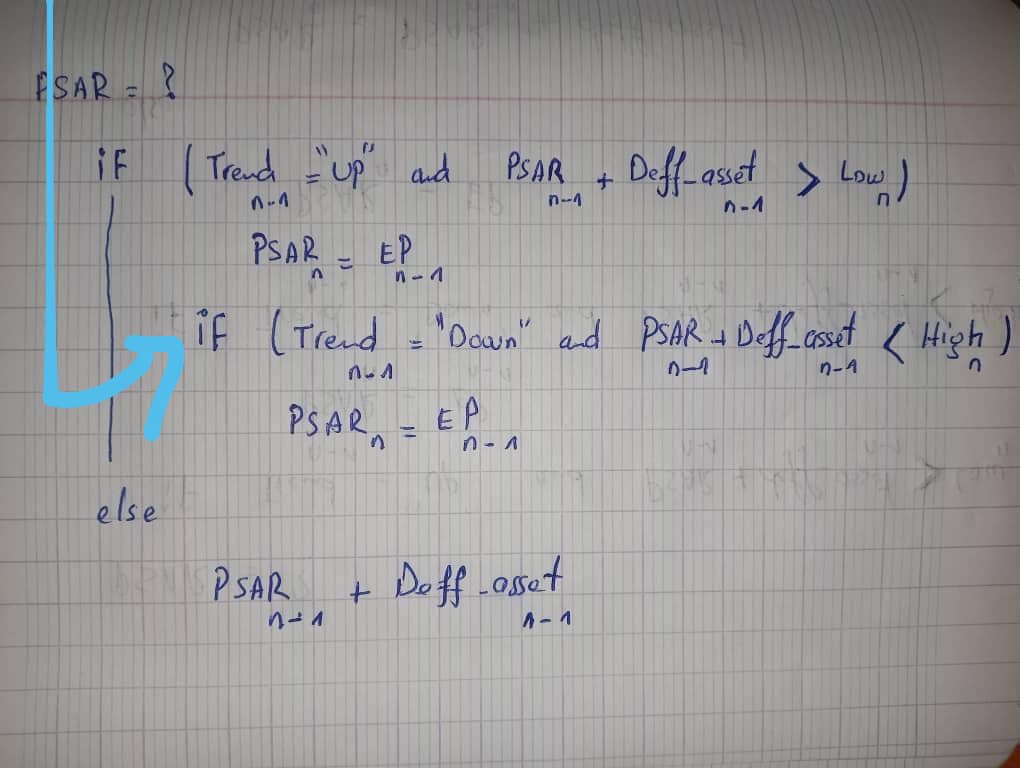 PSAR = ?
if ( Trend n-1 = "up" and PSAR n-1 + Deff_asset n-1 > Low n )
PSAR n = EP n-1
if ( Trend n-1 = "Down" and PSAR n-1 + Deff_asset n-1 < High n )
PSAR n = EP n-1
else
PSAR n-1 + Deff_asset n-1